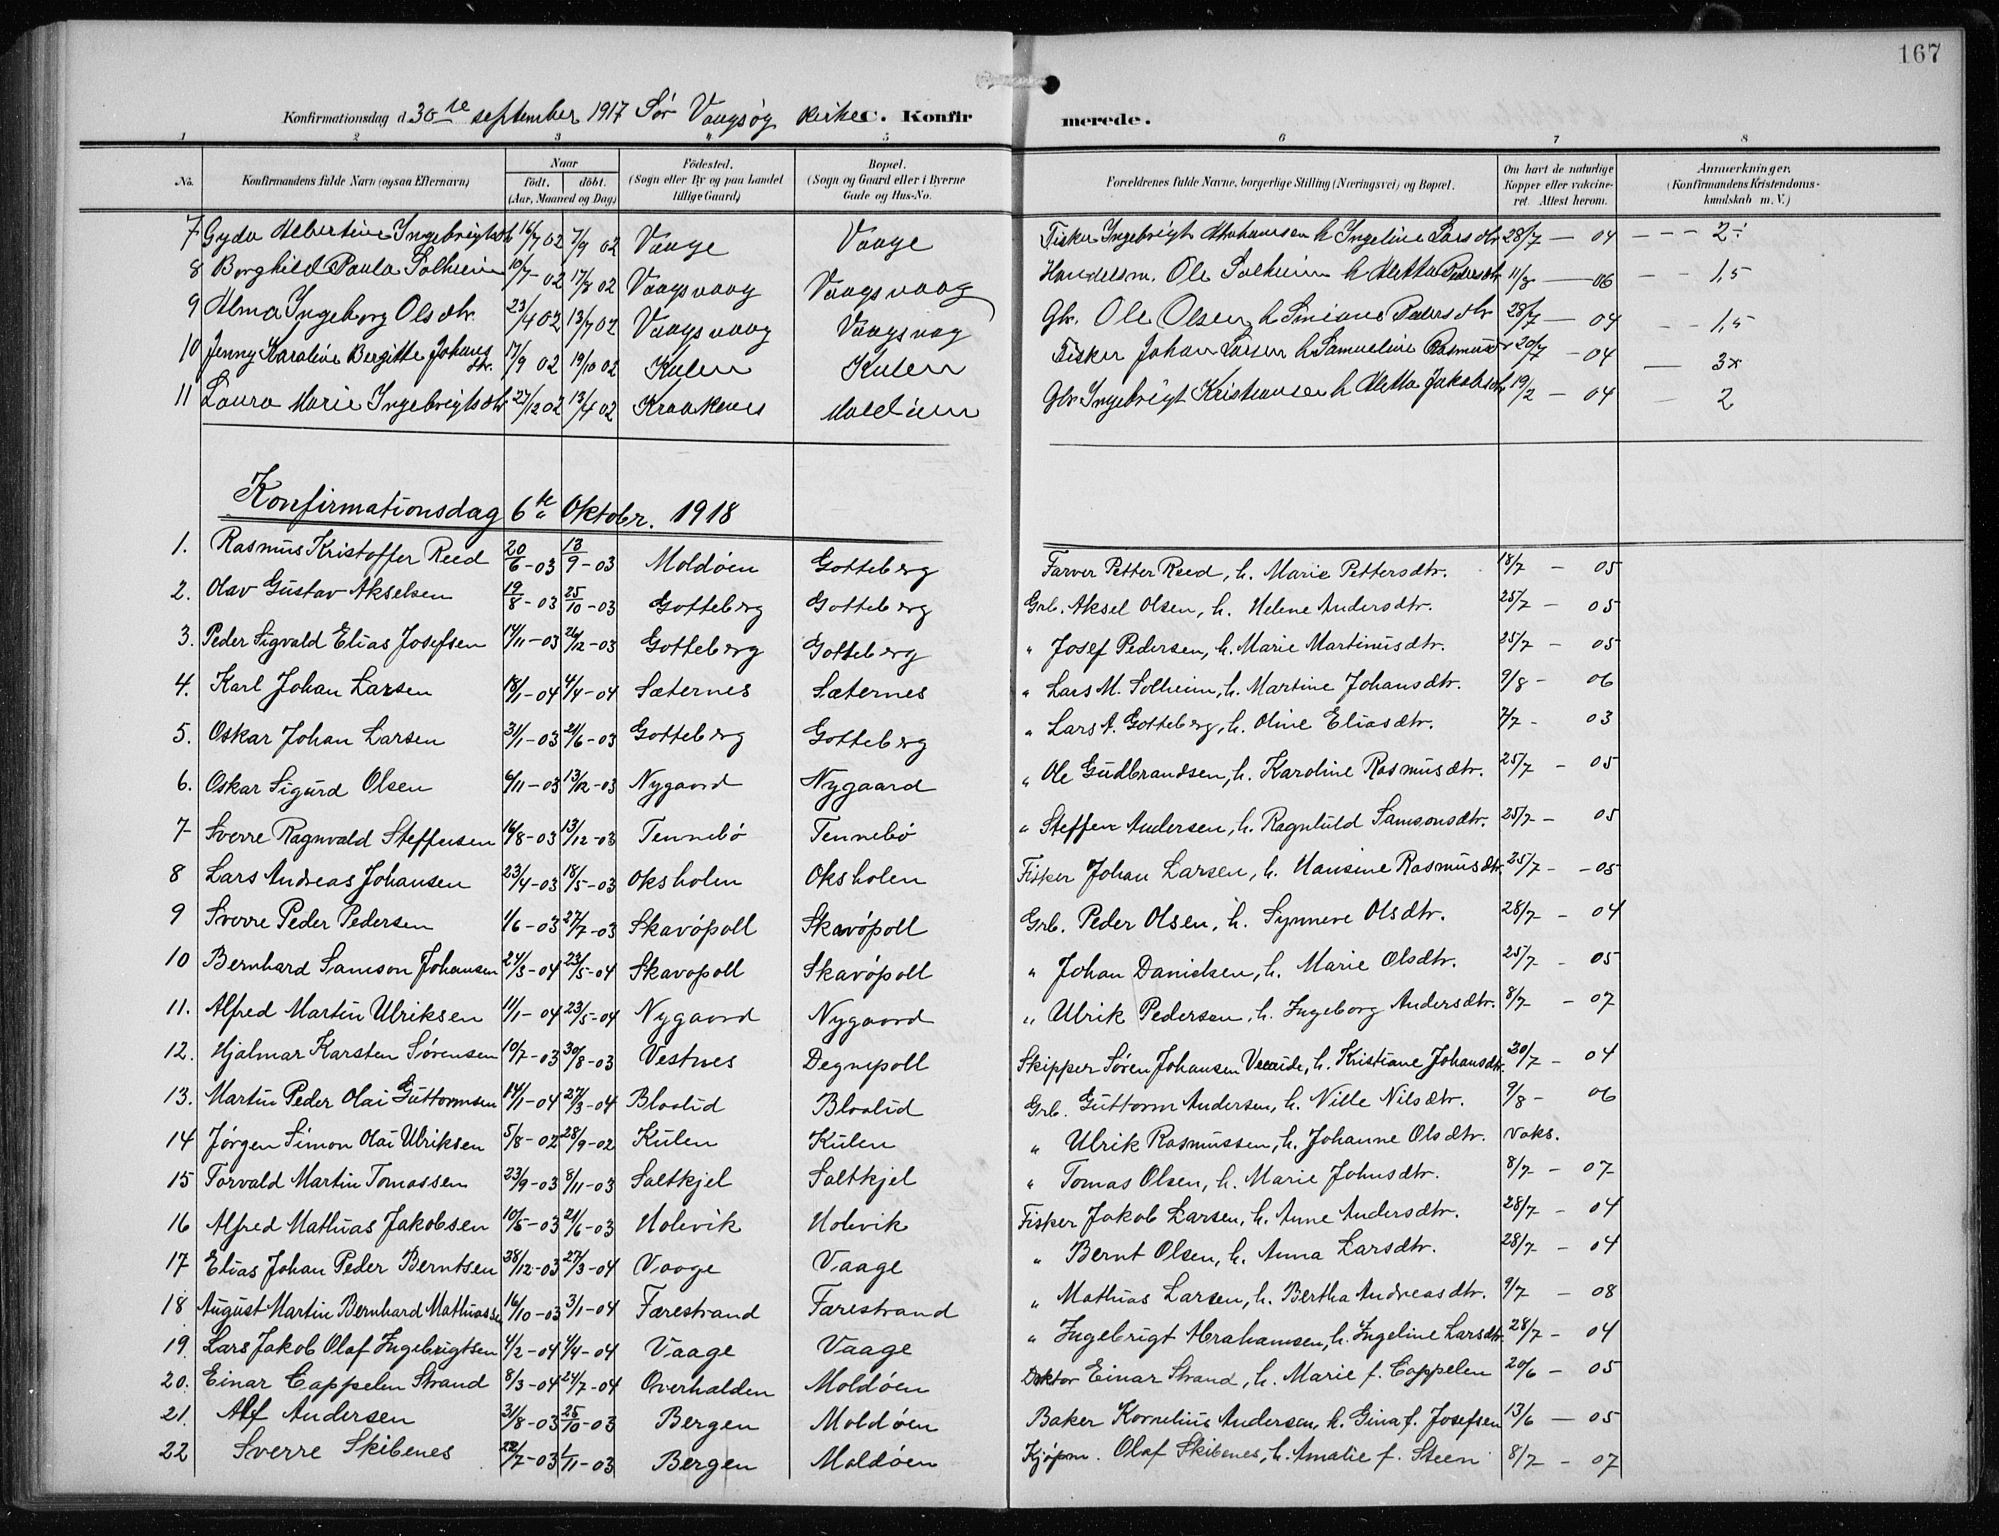 167
Konfirmationsdag d. 30te september 1917 Sør Vaagsøy kirke C. Konfirmerede.
1 2 3 4 5 6 7 8
No. Konfirmandens fulde Navn (ogsaa Efternavn) Naar födt. döbt. (Aar, Maaned og Dag) Födested. (Sogn eller By og paa Landet tillige Gaard) Bopæl. (Sogn og Gaard eller i Byerne Gade og Hus-No. Forældrenes fulde Navne, borgerlige Stilling (Næringsvei) og Bopæl. Om havt de naturlige Kopper eller vakcineret. Attest herom. Anmærkninger. (Konfirmandens Kristendomskundskab m. V.)
7 Gyda Albertine Ingebrigtsdtr 16/7 02 7/9 02 Vaage Vaage Fisker Ingebrigt Abrahamsen h Ingeline Larsdtr 28/7 — 04 - - - 2÷
8 Borghild Paula Solheim 10/7 - 02 17/8 02 Vaagsvaag Vaagsvaag Handelsm. Ole Solheim h Metta Pedersdtr 11/8 — 06 - - 1,5
9 Alma Ingeborg Olsdtr. 23/4 02 13/7 02 Vaagsvaag Vaagsvag Gbr. Ole Olsen h Siniane Pedersdtr 28/7 — 04 - - 1,5
10 Jenny Karoline Bergitte Johansdtr. 17/9 02 19/10 02 Kulen Kulen Fisker Johan Larsen h Samueline Rasmusd r 20/7 - 04 — 3x
11 Laura Marie Ingebrigtsdtr 27/12 02 13/4 02 Kraakenes Moldöen Gbr Ingebrigt Kristiansen h Metta Jakobsdtr 19/2 — 04 — 2
Konfirmationsdag 6te Oktobr. 1918
1. Rasmus Kristoffer Reed 20/6 - 03 13/9 - 03 Moldöen Gotteberg Farver Petter Reed, h. Marie Pettersdtr. 18/7 - 05
2. Olav Gustav Akselsen 19/8 - 03 25/10 - 03 Gotteberg Gotteberg Grb. Aksel Olsen, h. Helene Andersdtr. 25/7 - 05
3. Peder Sigvald Elias Josefsen 14/11 - 03 26/12 - 03 Gotteberg Gotteberg " Josef Pedersen, h. Marie Martinusdtr. 25/7 - 05
4. Karl Johan Larsen 18/1 - 04 4/4 - 04 Sæternes Sæternes " Lars M. Solheim, h. Martine Johansdtr. 9/8 - 06
5. Oskar Johan Larsen 31/1 - 03 21/6 - 03 Gotteberg Gotteberg " Lars A. Gotteberg, h. Oline Eliasdtr. 7/7 - 03
6. Oskar Sigurd Olsen 6/11 - 03 13/12 - 03 Nygaard Nygaard " Ole Gudbrandsen, h. Karoline Rasmusdtr. 25/7 - 05
7- Sverre Ragnvald Steffensen 16/8 - 03 13/12 - 03 Tennebö Tennebö " Steffen Andersen, h. Ragnhild Samsonsdtr. 25/7 - 05
8 Lars Andreas Johansen 23/4 - 03 18/5 - 03 Oksholm Oksholen Fisker Johan Larsen, h. Hansine Rasmusdtr. 25/7 - - 05
9 Sverre Peder Pedersen 1/6 - 03 27/7 - 03 Skavöpoll Skavöpoll Grb. Peder Olsen, h. Synneve Olsdtr. 28/7 - 04
10 Bernhard Samson Johansen 24/3 - 04 23/5 - 04 Skavöpoll Skavöpoll " Johan Danielsen, h. Marie Olsdtr. 25/7 - 05
11. Alfred Martin Ulriksen 11/1 - 04 23/5 - 04 Nygaard Nygaard " Ulrik Pedersen, h. Ingeborg Andersdtr. 8/7 - 07
12. Hjalmar Karsten Sørensen 10/7 - 03 30/8 - 03 Vestnes Degnepoll Skipper Søren Johansen h. Kristiane Johansdtr. 30/7 - 04
13. Martin Peder Olai Guttormsen 14/1 - 04 27/3 - 04 Blaalid Blaalid Grb. Guttorm Andersen, h. Nille Nilsdtr. 9/8 - 06
14 Jørgen Simon Olai Ulriksen 5/8 - 02 28/9 - 02 Kulen Kulen " Ulrik Rasmussen, h. Johanne Olsdtr. vaks.
15 Torvald Martin Tomassen 23/9 - 03 8/11 - 03 Saltkjel Saltkjel " Tomas Olsen, h. Marie Johnsdtr. 8/7 - 07
16 Alfred Mathias Jakobsen 10/5 - 03 21/6 - 03 Holevik Holevik Fisker Jakob Larsen, h. Anne Andersdtr. 28/7 - 04
17 Elias Johan Peder Berntsen 28/12 - 03 27/3 - 04 Vaage Vaage " Bernt Olsen, h. Anna Larsdtr. 28/7 - 04
18 August Martin Bernhard Mathiassen 16/10 - 03 3/1 - 04 Farestrand Farestrand " Mathias Larsen, h. Bertha Andreasdtr. 9/7 - 08
19. Lars Jakob Olaf Ingebrigtsen 4/2 - 04 4/4 - 04 Vaage Vaage " Ingebrigt Abrahamsen, h. Ingeline Larsdtr 28/7 - 04
20. Einar Cappelen Strand 8/3 - 04 24/7 - 04 Overhalden Moldöen Doktor Einar Strand, h. Marie f. Cappelen 20/6 - 05
21. Alf Andersen 31/8 - 03 25/10 - 03 Bergen Moldöen Baker Kornelius Andersen, h. Gina f. Josefsen 13/6 - 05
22 Sverre Skibenes 22/7 - 03 1/11 - 03 Bergen Moldöen Kjøpm. Olaf Skibenes, h. Amalie f. Steen 8/7 - 07